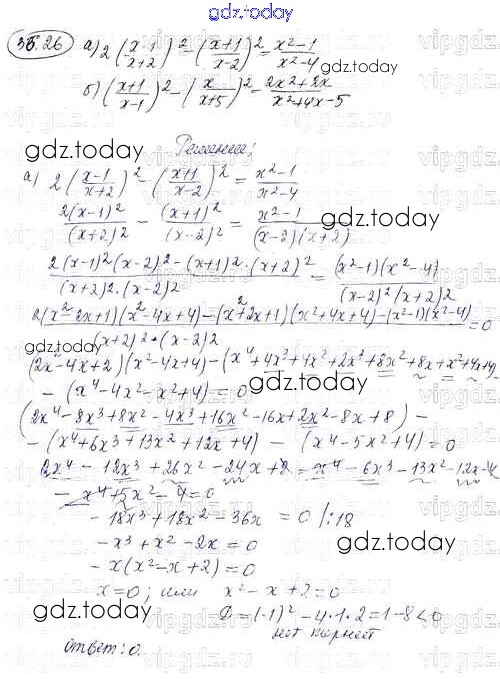 gdz.today
36.26 а) 2(x-1/x+2)² - (x+1/x-2)² = x²-1/x²-4
б) (x+1/x-1)² - (x/x+5)² = 2x²+2x/x²+4x-5
Решение:
gdz.today
а) 2(x-1/x+2)² - (x+1/x-2)² = x²-1/x²-4
2(x-1)²/(x+2)² - (x+1)²/(x-2)² = x²-1/(x-2)(x+2)
gdz.today
2(x-1)²(x-2)² - (x+1)²·(x+2)²/(x+2)²·(x-2)² = (x²-1)(x²-4)/(x-2)²(x+2)²
2(x²-2x+1)(x²-4x+4)-(x²+2x+1)(x²+4x+4)-(x²-1)(x²-4)/(x+2)²·(x-2)² = 0
(2x²-4x+2)(x²-4x+4)-(x⁴+4x³+4x²+2x³+8x²+8x+x²+4x+4)
-(x⁴-4x²-x²+4)=0
gdz.today
(2x⁴-8x³+8x²-4x³+16x²-16x+2x²-8x+8)-
-(x⁴+6x³+13x²+12x+4)-(x⁴-5x²+4)=0
2x⁴-12x³+26x²-24x+8-x⁴-6x³-13x²-12x-4
-x⁴+5x²-4=0
-18x³+18x²-36x=0 /:18
-x³+x²-2x=0
gdz.today
-x(x²-x+2)=0
x=0; или x²-x+2=0
gdz.today
D=(-1)²-4·1·2=1-8<0
нет корней
ответ: 0.
gdz.today